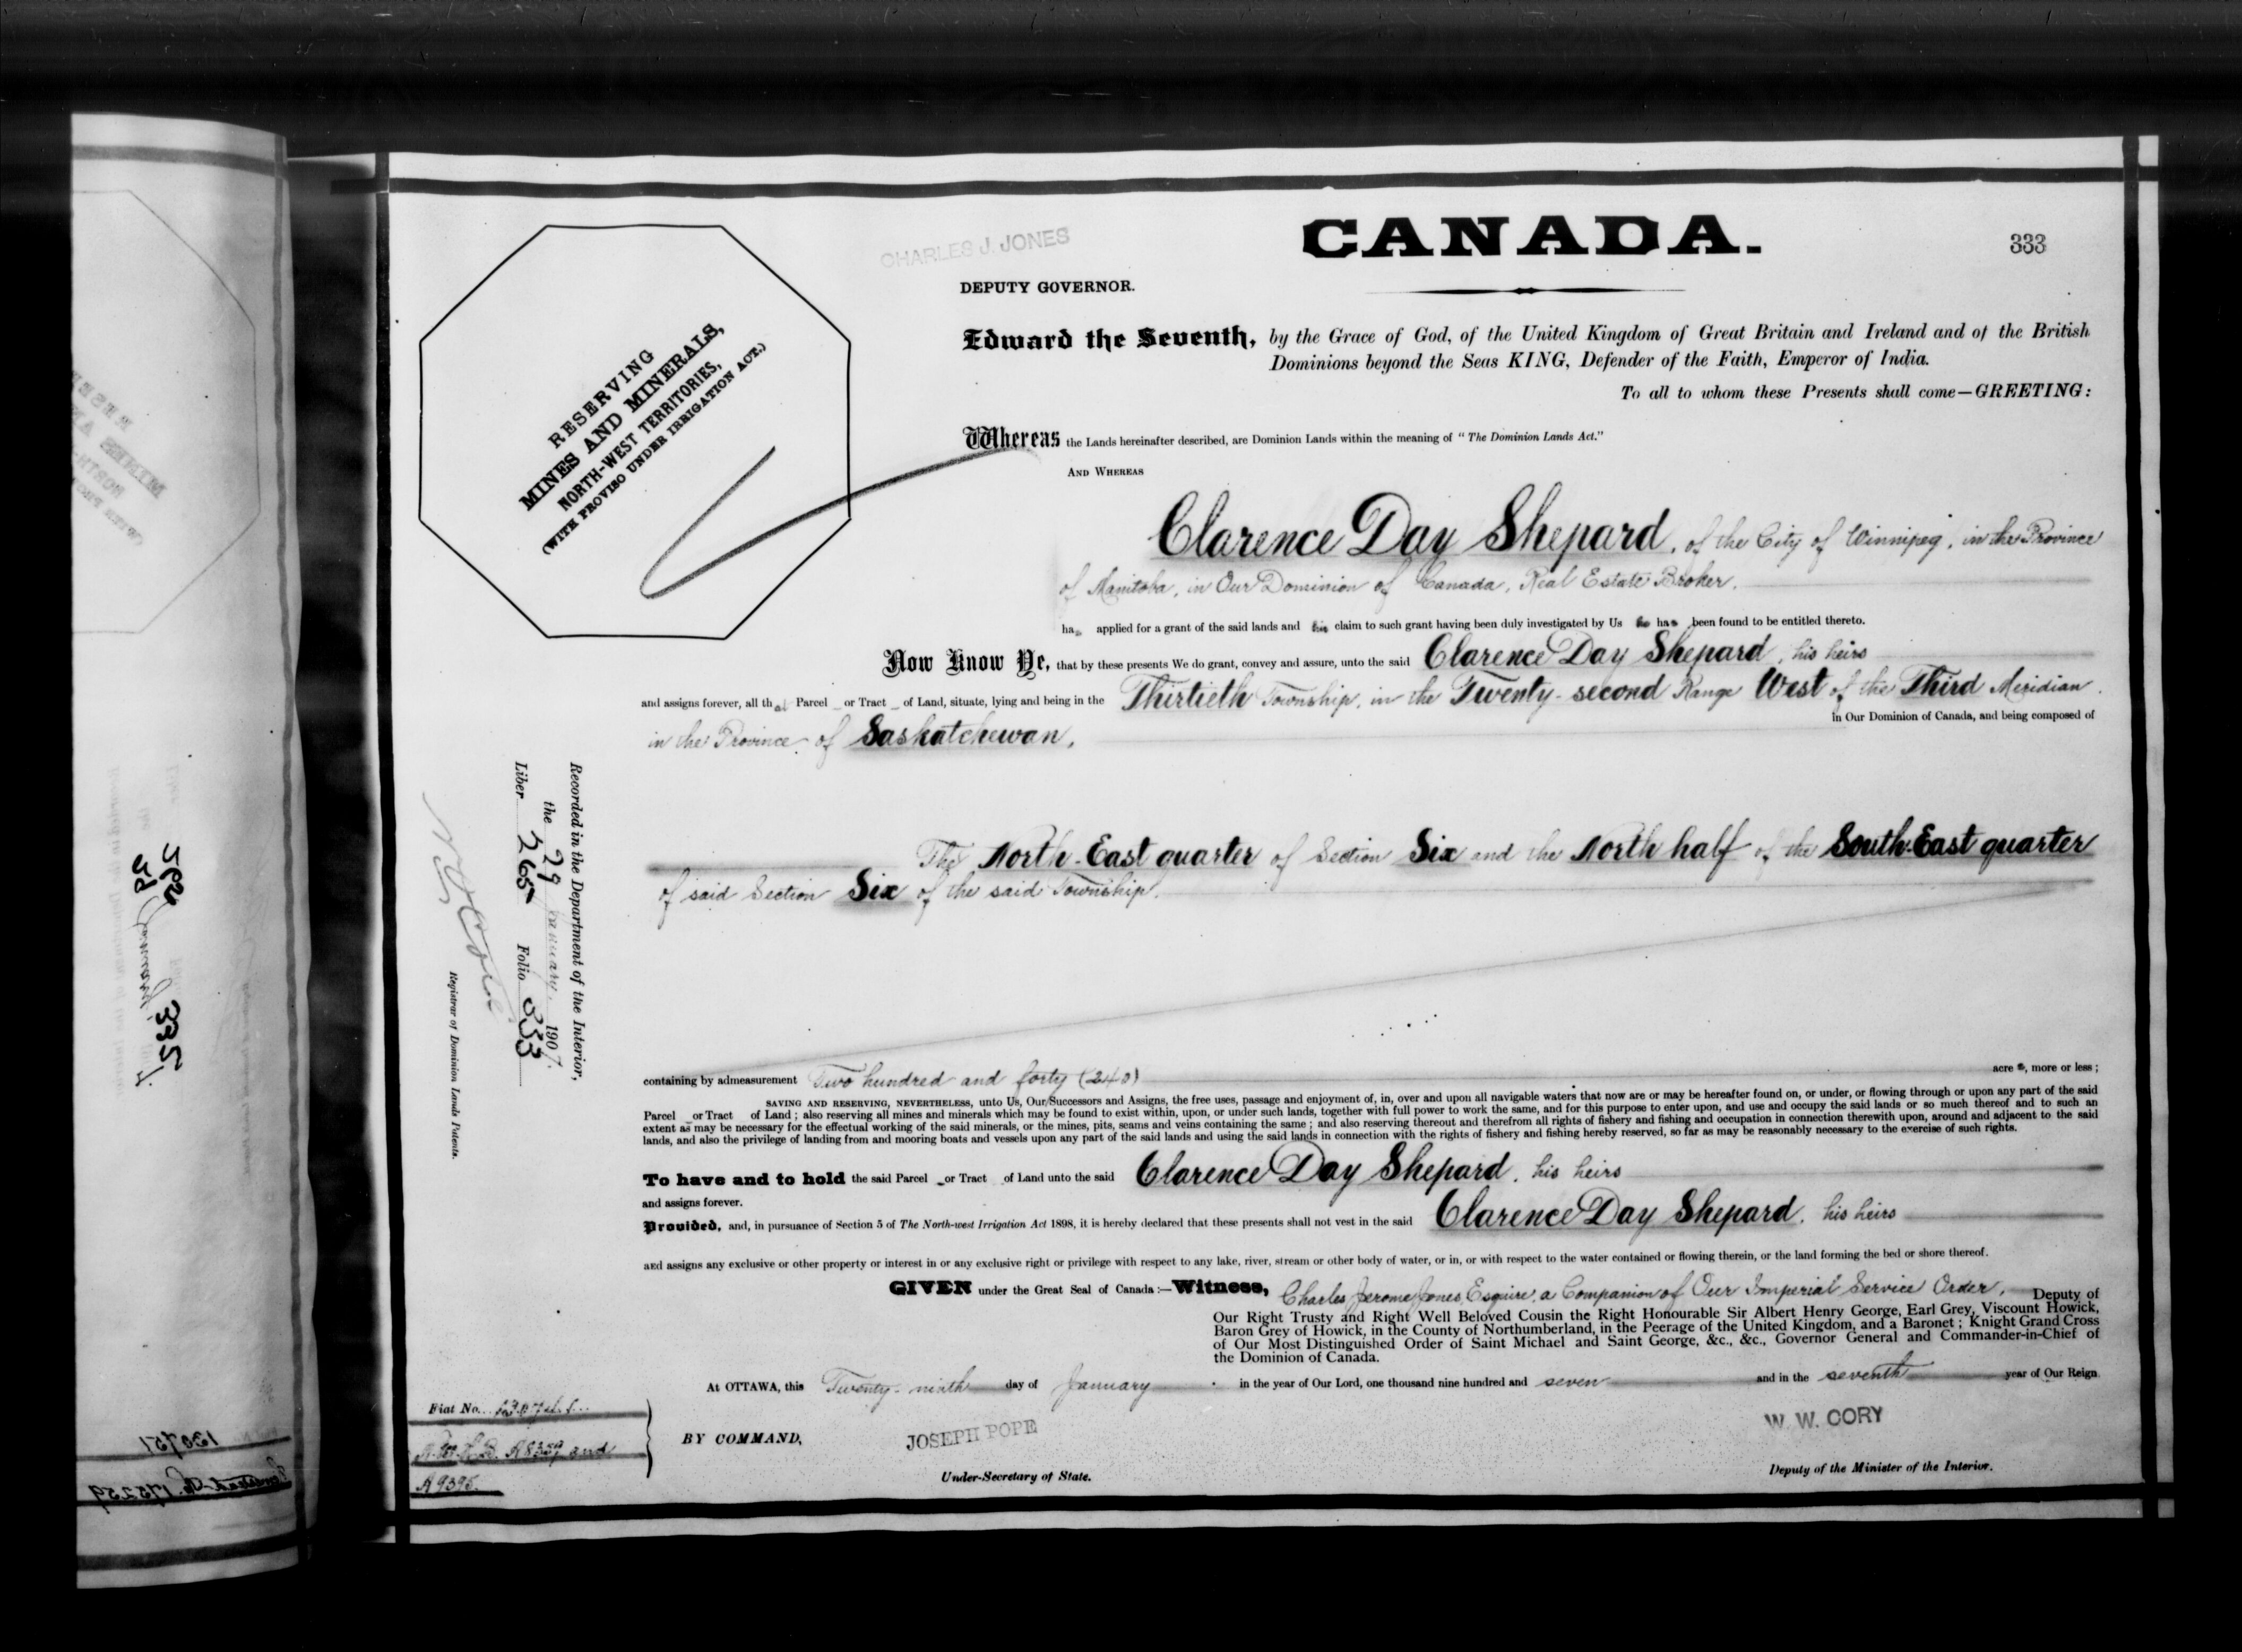 CHARLES J. JONES
CANADA.
333
DEPUTY GOVERNOR.
RESERVING
MINES AND MINERALS,
NORTH-WEST TERRITORIES,
(WITH PROVISO UNDER IRRIGATION ACT.)
Edward the Seventh, by the Grace of God, of the United Kingdom of Great Britain and Ireland and of the British
Dominions beyond the Seas KING, Defender of the Faith, Emperor of India.
To all to whom these Presents shall come—GREETING:
Whereas the Lands hereinafter described, are Dominion Lands within the meaning of "The Dominion Lands Act."
AND WHEREAS
Clarence Day Shepard, of the City of Winnipeg, in the Province
of Manitoba, in Our Dominion of Canada, Real Estate Broker.
has applied for a grant of the said lands and his claim to such grant having been duly investigated by Us he has been found to be entitled thereto.
Now Know Ye, that by these presents We do grant, convey and assure, unto the said Clarence Day Shepard, his heirs
and assigns forever, all that Parcel or Tract of Land, situate, lying and being in the Thirtieth Township, in the Twenty-second Range West of the Third Meridian,
in the Province of Saskatchewan, in Our Dominion of Canada, and being composed of
The North-East quarter of Section Six and the North half of the South-East quarter
of said Section Six of the said Township.
Recorded in the Department of the Interior,
the 29 January, 1907.
Liber 265 Folio 333
Registrar of Dominion Lands Patents.
containing by admeasurement Two hundred and forty (240) acres, more or less;
SAVING AND RESERVING, NEVERTHELESS, unto Us, Our Successors and Assigns, the free uses, passage and enjoyment of, in, over and upon all navigable waters that now are or may be hereafter found on, or under, or flowing through or upon any part of the said
Parcel or Tract of Land; also reserving all mines and minerals which may be found to exist within, upon, or under such lands, together with full power to work the same, and for this purpose to enter upon, and use and occupy the said lands or so much thereof and to such an
extent as may be necessary for the effectual working of the said minerals, or the mines, pits, seams and veins containing the same; and also reserving thereout and therefrom all rights of fishery and fishing and occupation in connection therewith upon, around and adjacent to the said
lands, and also the privilege of landing from and mooring boats and vessels upon any part of the said lands and using the said lands in connection with the rights of fishery and fishing hereby reserved, so far as may be reasonably necessary to the exercise of such rights.
To have and to hold the said Parcel or Tract of Land unto the said Clarence Day Shepard, his heirs
and assigns forever.
Provided, and, in pursuance of Section 5 of The North-west Irrigation Act 1898, it is hereby declared that these presents shall not vest in the said Clarence Day Shepard, his heirs
and assigns any exclusive or other property or interest in or any exclusive right or privilege with respect to any lake, river, stream or other body of water, or in, or with respect to the water contained or flowing therein, or the land forming the bed or shore thereof.
GIVEN under the Great Seal of Canada:—Witness, Charles Jerome Jones, Esquire, a Companion of Our Imperial Service Order, Deputy of
Our Right Trusty and Right Well Beloved Cousin the Right Honourable Sir Albert Henry George, Earl Grey, Viscount Howick,
Baron Grey of Howick, in the County of Northumberland, in the Peerage of the United Kingdom, and a Baronet; Knight Grand Cross
of Our Most Distinguished Order of Saint Michael and Saint George, &c., &c., Governor General and Commander-in-Chief of
the Dominion of Canada.
At OTTAWA, this Twenty-ninth day of January in the year of Our Lord, one thousand nine hundred and seven and in the seventh year of Our Reign.
Fiat No.
A8359 and
A9395.
BY COMMAND,
JOSEPH POPE
Under-Secretary of State.
W. W. CORY
Deputy of the Minister of the Interior.